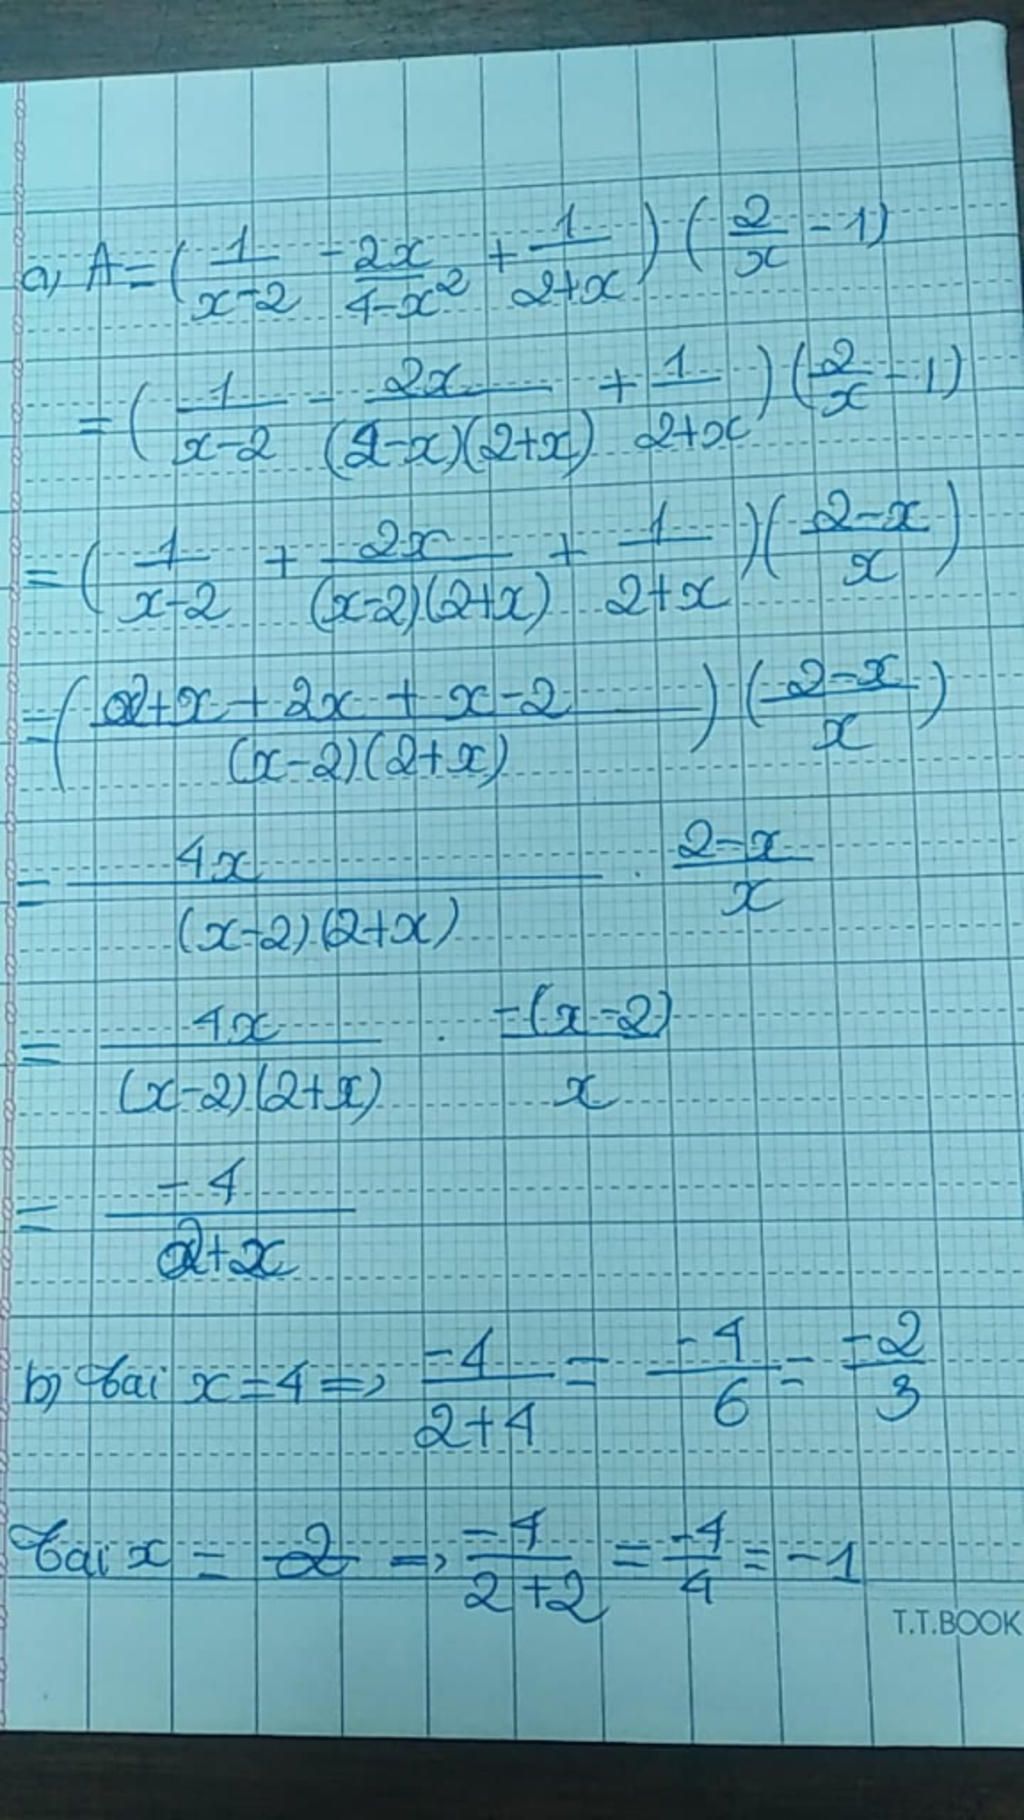 a, A = ( 1/(x-2) - 2x/(4-x²) + 1/(2+x) ) ( 2/x - 1)
= ( 1/(x-2) - 2x/((2-x)(2+x)) + 1/(2+x) ) ( 2/x - 1)
= ( 1/(x-2) + 2x/((x-2)(2+x)) + 1/(2+x) ) ( (2-x)/x )
= ( (2+x + 2x + x-2)/((x-2)(2+x)) ) ( (2-x)/x )
= 4x/((x-2)(2+x)) . (2-x)/x
= 4x/((x-2)(2+x)) . -(x-2)/x
= -4/(2+x)
b, tai x = 4 => -4/(2+4) = -4/6 = -2/3
tai x = 2 => -4/(2+2) = -4/4 = -1
T.T.BOOK